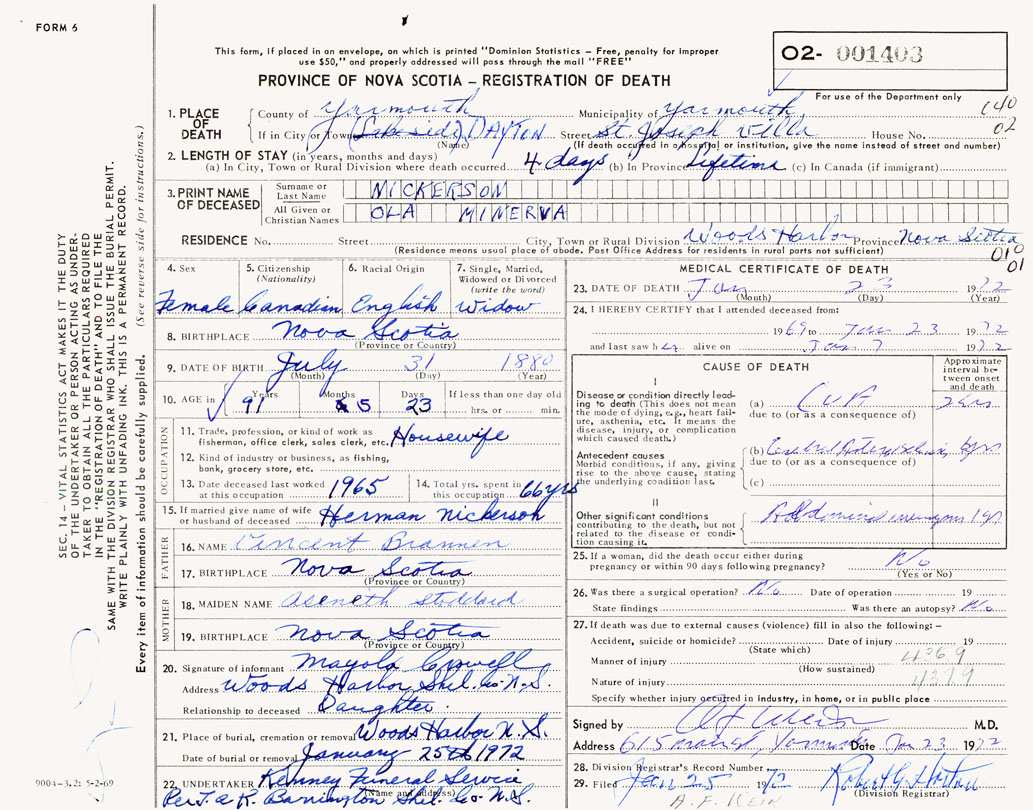 FORM 6
This form, if placed in an envelope, on which is printed "Dominion Statistics – Free, penalty for improper
use $50," and properly addressed will pass through the mail "FREE"
PROVINCE OF NOVA SCOTIA – REGISTRATION OF DEATH
02- 001403
For use of the Department only
140
02
1. PLACE OF DEATH
County of Yarmouth Municipality of Yarmouth
If in City or Town (Lakeside) DAYTON Street St. Joseph Villa House No.
(Name) (If death occurred in a hospital or institution, give the name instead of street and number)
2. LENGTH OF STAY (in years, months and days)
(a) In City, Town or Rural Division where death occurred 4 days (b) In Province Lifetime (c) In Canada (if immigrant)
3. PRINT NAME OF DECEASED
Surname or Last Name NICKERSON
All Given or Christian Names OLA MINERVA
RESIDENCE No. Street City, Town or Rural Division Woods Harbor Province Nova Scotia
(Residence means usual place of abode. Post Office Address for residents in rural parts not sufficient)
010
01
4. Sex 5. Citizenship (Nationality) 6. Racial Origin 7. Single, Married, Widowed or Divorced (write the word)
Female Canadian English Widow
8. BIRTHPLACE Nova Scotia
(Province or Country)
9. DATE OF BIRTH July 31 1880
(Month) (Day) (Year)
10. AGE in Years Months Days If less than one day old
91 5 23 hrs. or min.
OCCUPATION
11. Trade, profession, or kind of work as
fisherman, office clerk, sales clerk, etc. Housewife
12. Kind of industry or business, as fishing,
bank, grocery store, etc.
13. Date deceased last worked at this occupation 1965
14. Total yrs. spent in this occupation 66 yrs
15. If married give name of wife
or husband of deceased Herman Nickerson
FATHER
16. NAME Vincent Brannen
17. BIRTHPLACE Nova Scotia
(Province or Country)
MOTHER
18. MAIDEN NAME Aseneth Stoddard
19. BIRTHPLACE Nova Scotia
(Province or Country)
20. Signature of informant Mayola Crowell
Address Woods Harbor Shel. Co. N.S.
Relationship to deceased Daughter
21. Place of burial, cremation or removal Woods Harbor N.S.
Date of burial or removal January 25th 1972
22. UNDERTAKER Kenney Funeral Service
(Name and address)
Barrington Shel. Co. N.S.
MEDICAL CERTIFICATE OF DEATH
23. DATE OF DEATH Jan 23 1972
(Month) (Day) (Year)
24. I HEREBY CERTIFY that I attended deceased from:
1969 to Jan 23 1972
and last saw her alive on Jan 7 1972
CAUSE OF DEATH
Approximate interval between onset and death
I
Disease or condition directly leading to death (This does not mean
the mode of dying, e.g., heart failure, asthenia, etc. It means the
disease, injury, or complication
which caused death.)
(a)
due to (or as a consequence of)
Antecedent causes
Morbid conditions, if any, giving
rise to the above cause, stating
the underlying condition last.
(b)
due to (or as a consequence of)
(c)
II
Other significant conditions
contributing to the death, but not
related to the disease or condition causing it.
Abdominal
25. If a woman, did the death occur either during
pregnancy or within 90 days following pregnancy? No
(Yes or No)
26. Was there a surgical operation? No Date of operation 19
State findings Was there an autopsy? No
27. If death was due to external causes (violence) fill in also the following: –
Accident, suicide or homicide? Date of injury 19
(State which)
Manner of injury 4369
(How sustained)
Nature of injury 4379
Specify whether injury occurred in industry, in home, or in public place
Signed by M.D.
Address 615 Date Jan 23 1972
28. Division Registrar's Record Number
29. Filed Jan 25 1972
(Division Registrar)
SEC. 14 – VITAL STATISTICS ACT MAKES IT THE DUTY
OF THE UNDERTAKER OR PERSON ACTING AS UNDER-
TAKER TO OBTAIN ALL THE PARTICULARS REQUIRED
IN THE "REGISTRATION OF DEATH" AND TO FILE THE
SAME WITH THE DIVISION REGISTRAR WHO SHALL ISSUE THE BURIAL PERMIT.
WRITE PLAINLY WITH UNFADING INK. THIS IS A PERMANENT RECORD.
Every item of information should be carefully supplied. (See reverse side for instructions.)
9004-3.2: 5-2-69